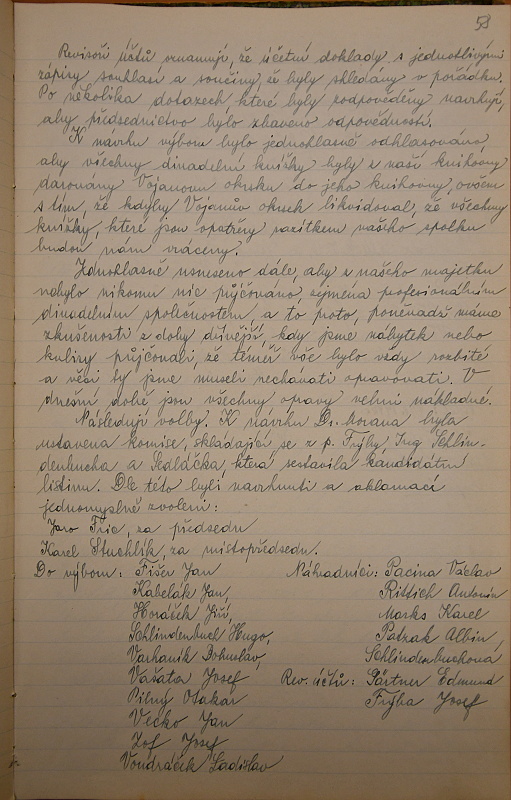 53
Revisoři účtů oznamují, že účetní doklady s jednotlivými
zápisy souhlasí a součiny, že byly shledány v pořádku.
Po několika dotazech které byly zodpověděny navrhují,
aby předsednictvo bylo zbaveno odpovědnosti.
K návrhu výboru bylo jednohlasně odhlasováno,
aby všechny divadelní knížky byly z naší knihovny
darovány Vojanovu okrsku do jeho knihovny, ovšem
s tím, že kdyby Vojanův okrsek likvidoval, že všechny
knížky, které jsou opatřeny razítkem našeho spolku
budou nám vráceny.
Jednohlasně usneseno dále, aby z našeho majetku
nebylo nikomu nic půjčováno, zejména profesionálním
divadelním společnostem, a to proto, poněvadž máme
zkušenosti z doby dřívější, kdy jsme nábytek nebo
kulisy půjčovali, že téměř vše bylo vždy rozbité
a věci ty jsme museli nechávati opravovati. V
dnešní době jsou všechny opravy velmi nákladné.
Následují volby. K návrhu Dr. Morana byla
ustavena komise, skládající se z p. Frýby, Ing Schlin-
denbucha a Sedláčka, která sestavila kandidátní
listinu. Dle této byli navrhnuti a aklamací
jednomyslně zvoleni:
Jaro Fric, za předsedu
Karel Stuchlík, za místopředsedu.
Do výboru: Fišer Jan Náhradníci: Pacina Václav
Kabelák Jan, Rittich Antonín
Horáček Jiří, Marks Karel
Schlindenbuch Hugo, Patrak Albín,
Varhaník Bohuslav, Schlindenbuchová
Vašata Josef Rev. účtů: Gärtner Edmund
Pilný Otakar Frýba Josef
Vecko Jan
Zof Josef
Vondráček Ladislav